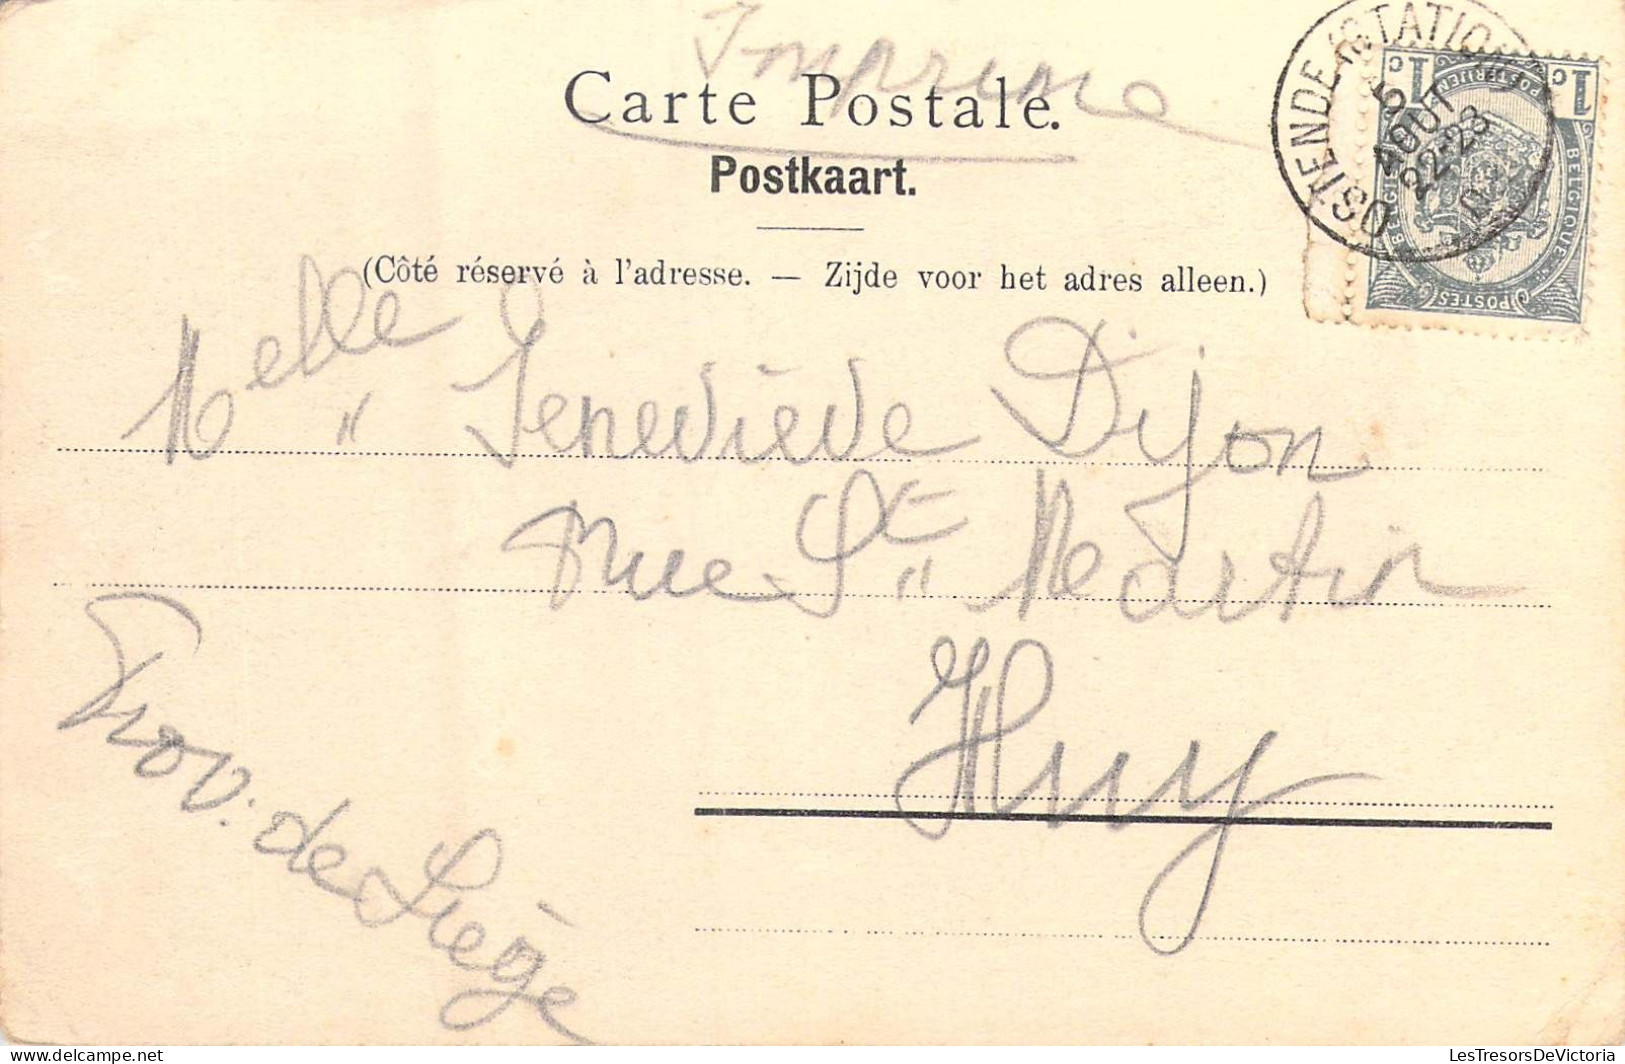 Imprimé
Carte Postale.
Postkaart.
(Côté réservé à l'adresse. — Zijde voor het adres alleen.)
OSTENDE (STATION)
5
AOUT
22-23
1c 1c
POSTERIJEN
BELGIE
BELGIQUE
POSTES
Melle Geneviève Dijon
Rue St Martin
Huy
Prov. de Liège
www.delcampe.net
LesTresorsDeVictoria